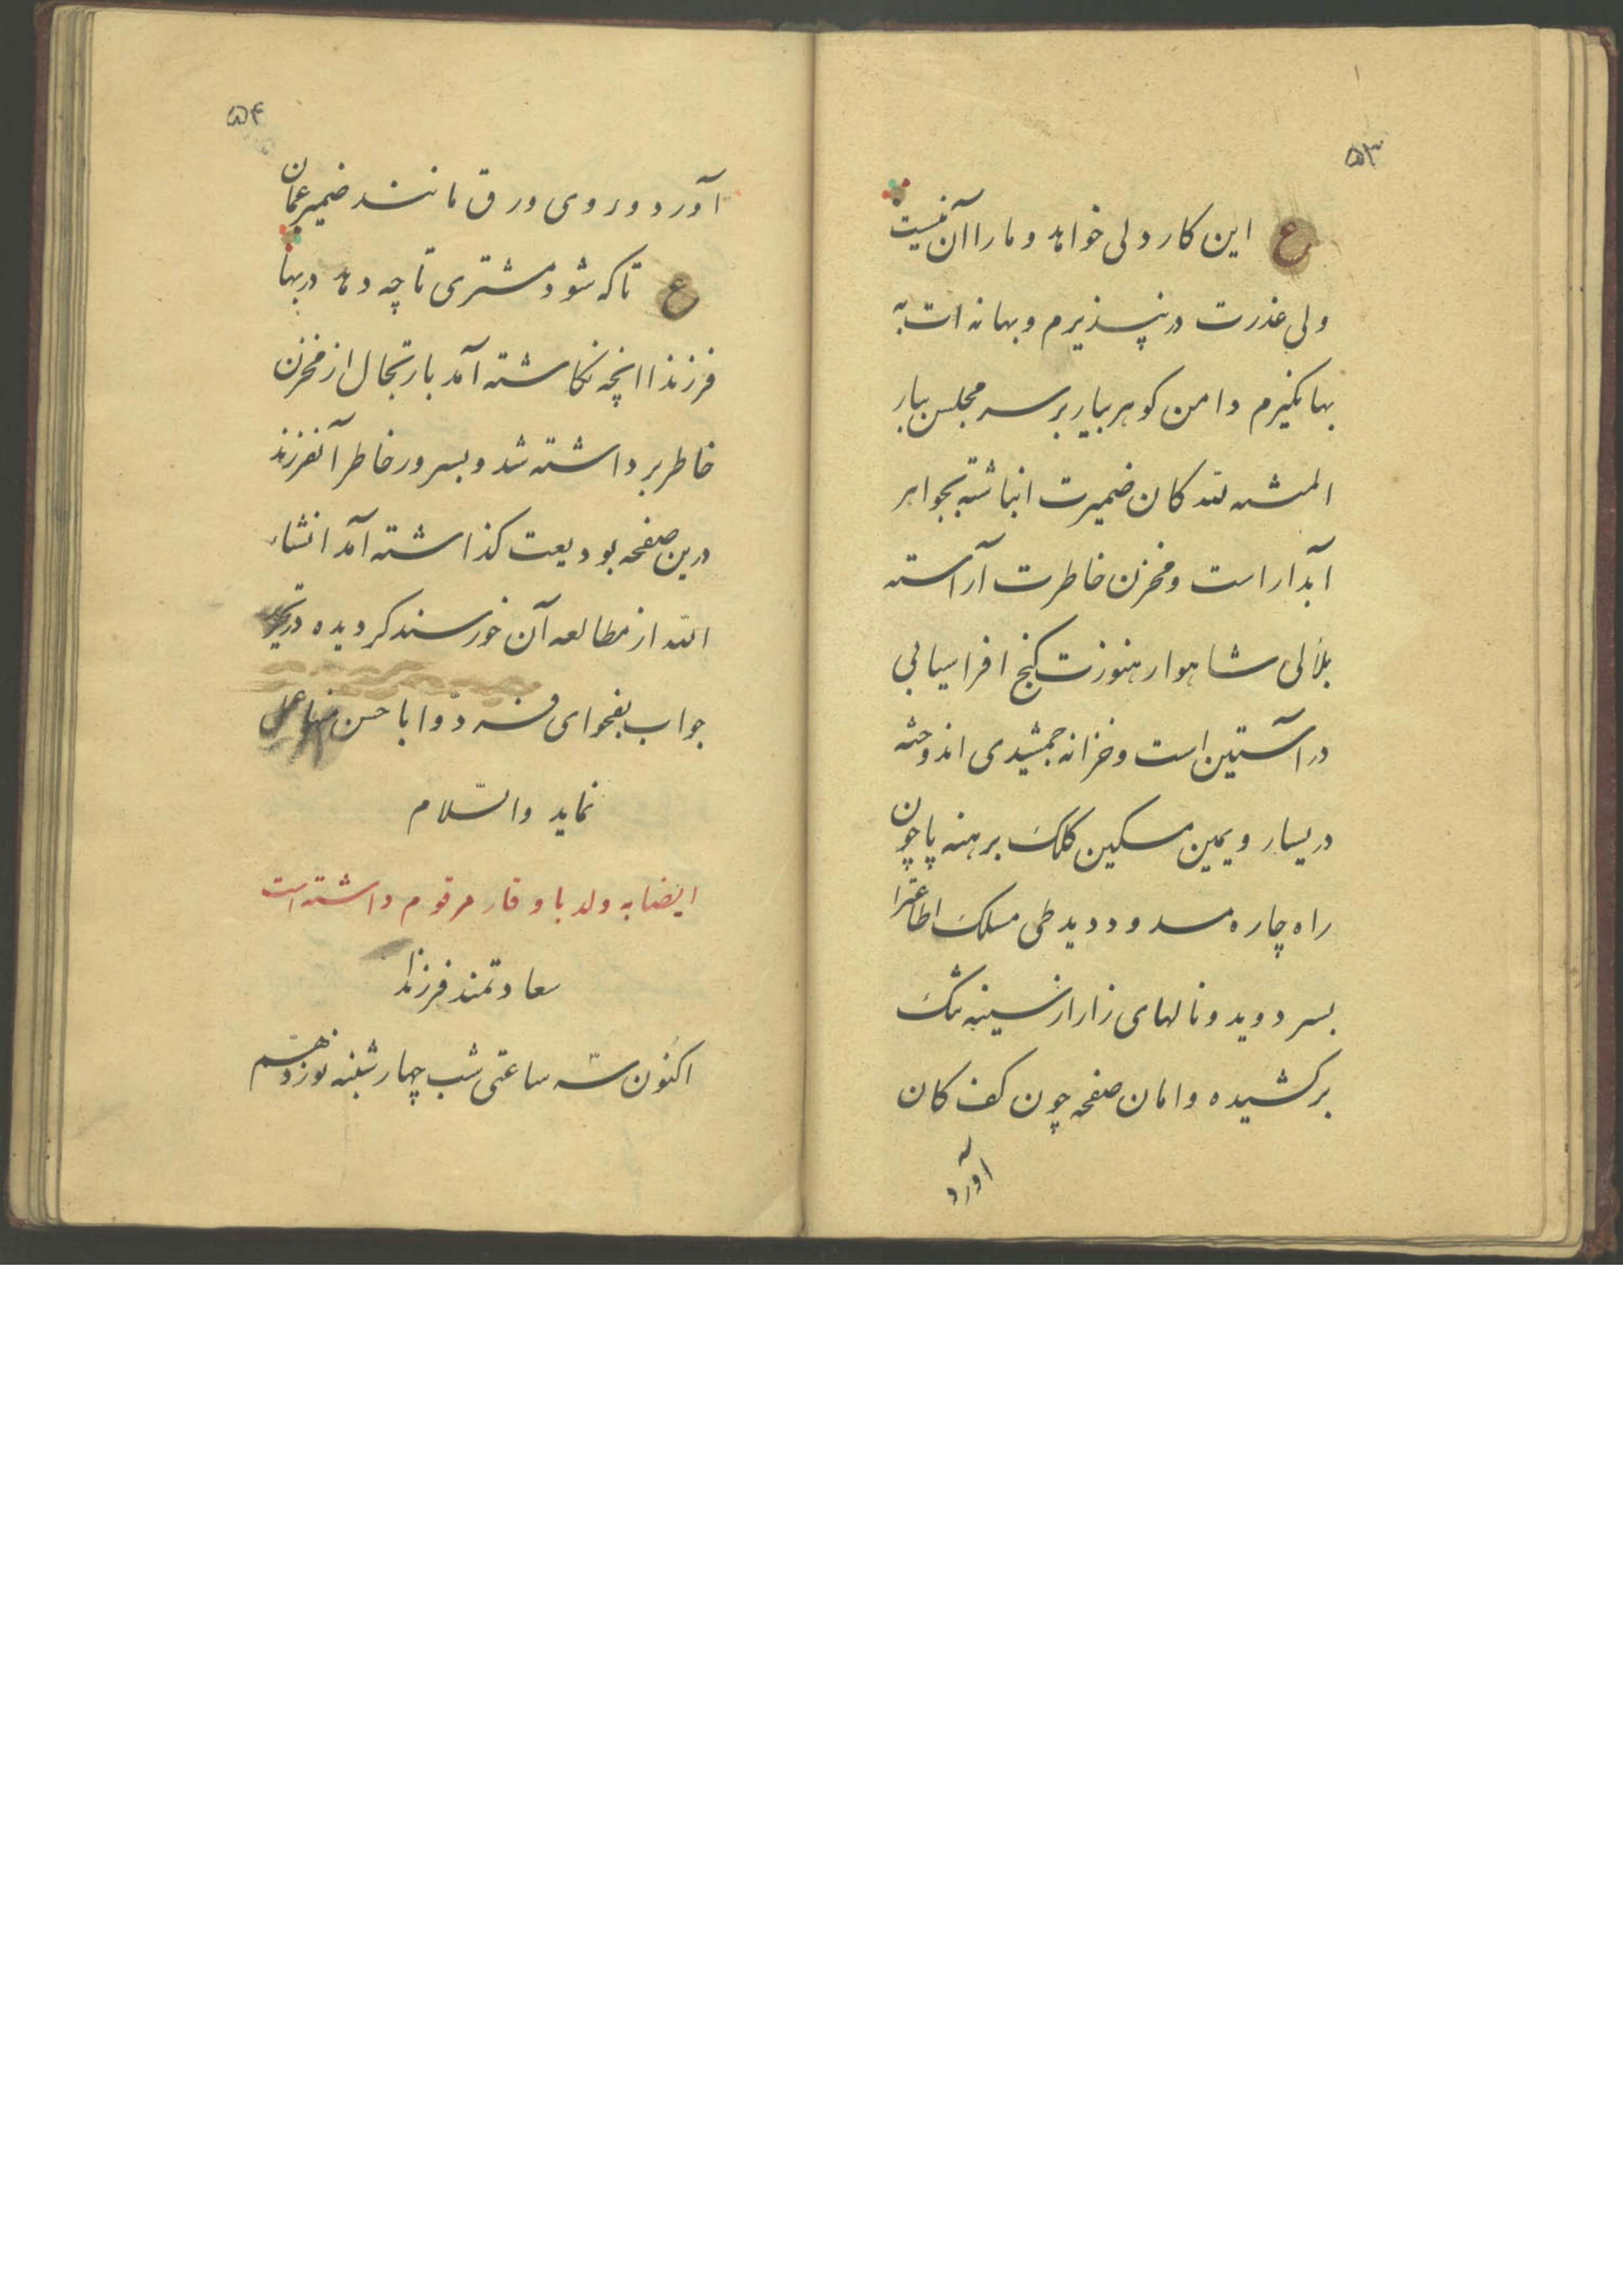 ۵۳
ع این کار دلی خواهد و ما را آن نیست
ولی عذرت درنپذیرم و بهانه ات به
بها نگیرم دامن کوهر بیار بر سر مجلس ببار
المنته لله کان ضمیرت انباشته بجواهر
آبدار است و مخزن خاطرت آراسته
بلألی شاهوار هنوزت کنج افراسیابی
در آستین است و خزانه جمشیدی اندوخته
در یسار و یمین مسکین کلک برهنه پا چون
راه چاره مسدود دید طی مسلک اطاعترا
بسر دوید و نالهای زار از سینه تنک
برکشیده دامان صفحه چون کف کان
آورد
۵۴
آورد و روی ورق مانند ضمیر عمان
ع تا که شود مشتری تا چه دهد در بها
فرزندا انچه نکاشته آمد بارتجال از مخزن
خاطر برداشته شد و بسرور خاطر آنفرزند
درین صفحه بودیعت کذاشته آمد انشاء
الله از مطالعه آن خورسند کردیده در تحریر
جواب بفحوای فردوا باحسن منها عمل
نماید والسلام
ایضا به ولد با وقار مرقوم داشته است
سعادتمند فرزندا
اکنون سه ساعتی شب چهارشنبه نوزدهم